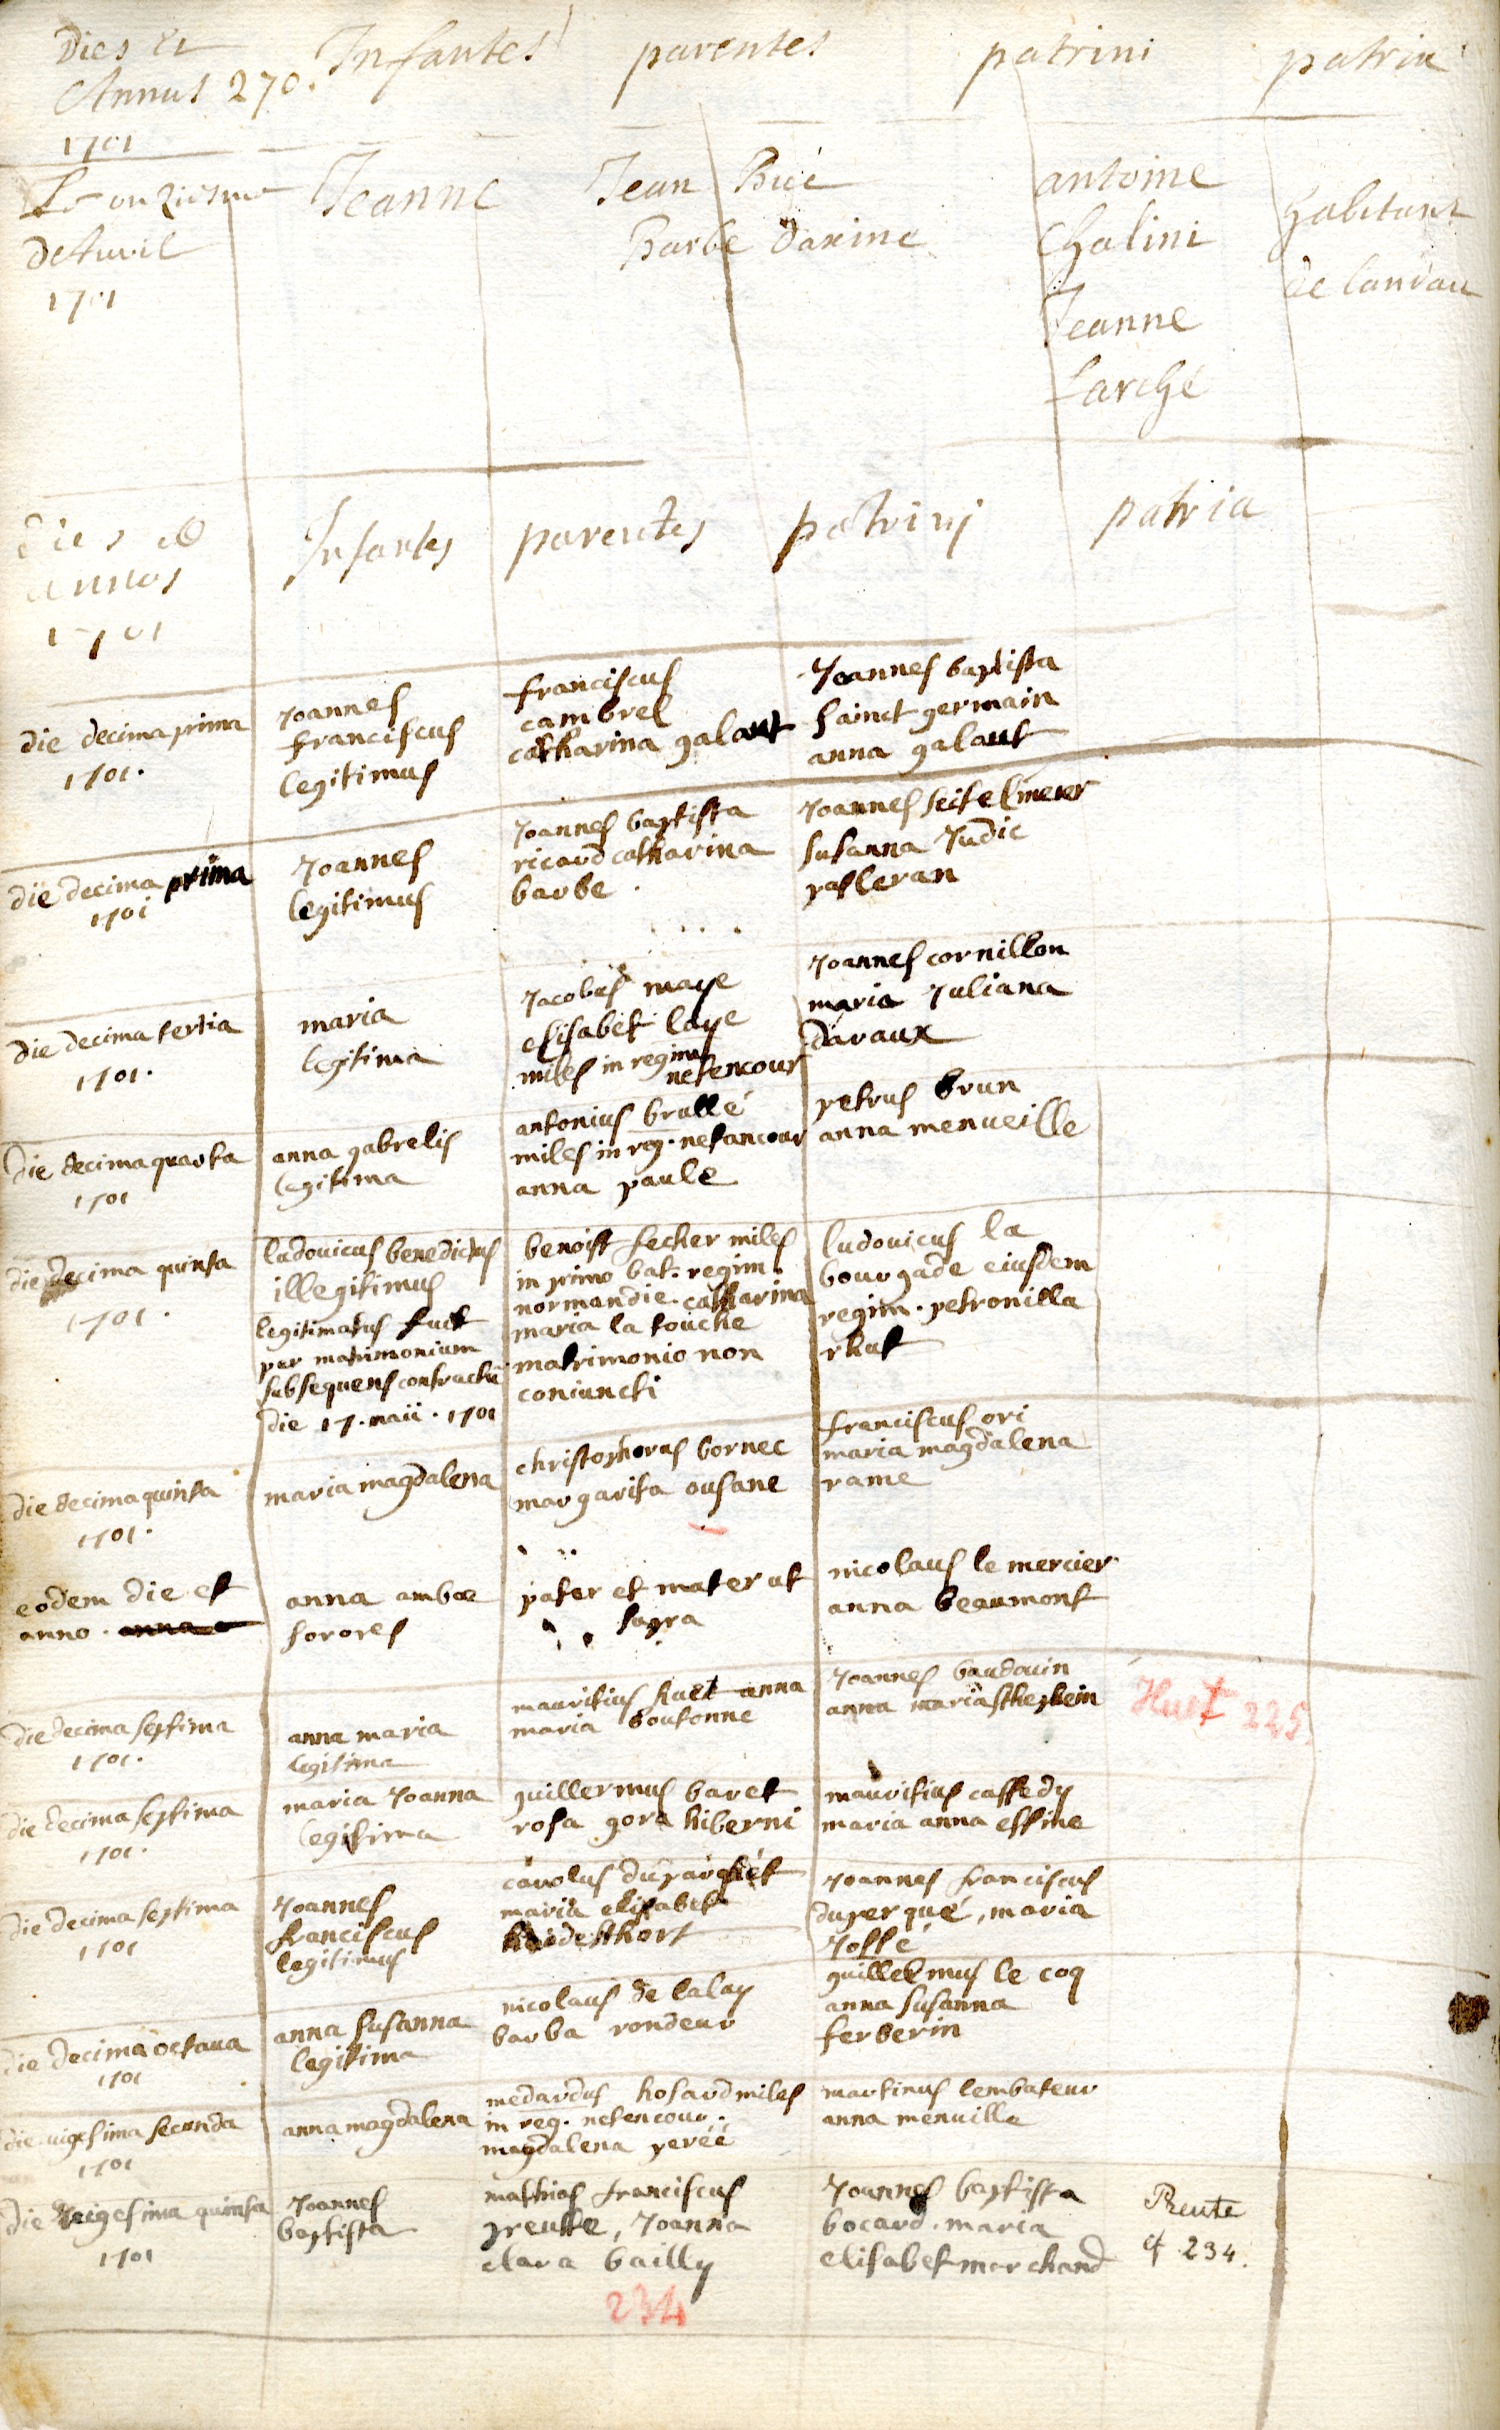 Dies et
Annus 270. Infantes parentes patrini patria
1701
Le onziesme Jeanne Jean antoine
Barbe Chalini habitant
d'Auvil Jeanne de landau
1701 Larché
dies
annos Infantes parentes patrinj patria
1701
die decima prima
1701.
Joannes
franciscus
legitimus
franciscus
cambrel
catharina galaut
Joannes baptista
sainct germain
anna galaut
die decima prima
1701
Joannes
legitimus
Joannes baptista
ricard catharina
barbe.
Joannes seitelmeier
susanna Judic
pasleran
die decima tertia
1701.
maria
legitima
Jacobus maye
elisabet laye
miles in regim
netencour
Joannes cornillon
maria Juliana
davaux
die decima quarta
1701
anna gabrelis
legitima
antonius brullé
miles in reg. netancour
anna paule
petrus brun
anna menueille
die decima quinta
1701.
ludouicus benedictus
illegitimus
legitimatus fuit
per matrimonium
subsequens contractu
die 17. maii. 1701
benoist fecher miles
in primo bat. regim.
normandie. catharina
maria la touche
matrimonio non
coniuncti
ludouicus la
bourgade eiusdem
regim. petronilla
rhut
die decima quinta
1701.
maria magdalena
christophorus bornec
margarita ousane
franciscus ori
maria magdalena
rame
eodem die et
anno.
anna ambae
sorores
pater et mater ut
supra
nicolaus le mercier
anna beaumont
die decima septima
1701.
anna maria
legitima
mauritius huet anna
maria boutonne
Joannes baudouin
anna maria stheybein
Huet 225.
die decima septima
1701.
maria Joanna
legitima
guillermus baret
rosa gora hiberni
mauritius caffedy
maria anna essine
die decima septima
1701
Joannes
franciscus
legitimus
carolus duparquet
maria elisabet
Joannes franciscus
duperqué, maria
Jossé
die decima octaua
1701
anna susanna
legitima
nicolaus de lalay
barba rondeur
guillelmus le coq
anna susanna
ferberin
die uigesima secunda
1701
anna magdalena
medardus hosard miles
in reg. netencour.
magdalena peréé
martinus lembateur
anna menuille
die veigesima quinta
1701
Joannes
baptista
mathias franciscus
preutte, Joanna
clara bailly
Joannes baptista
bocard. maria
elisabet marchand
Preute
cf 234.
234